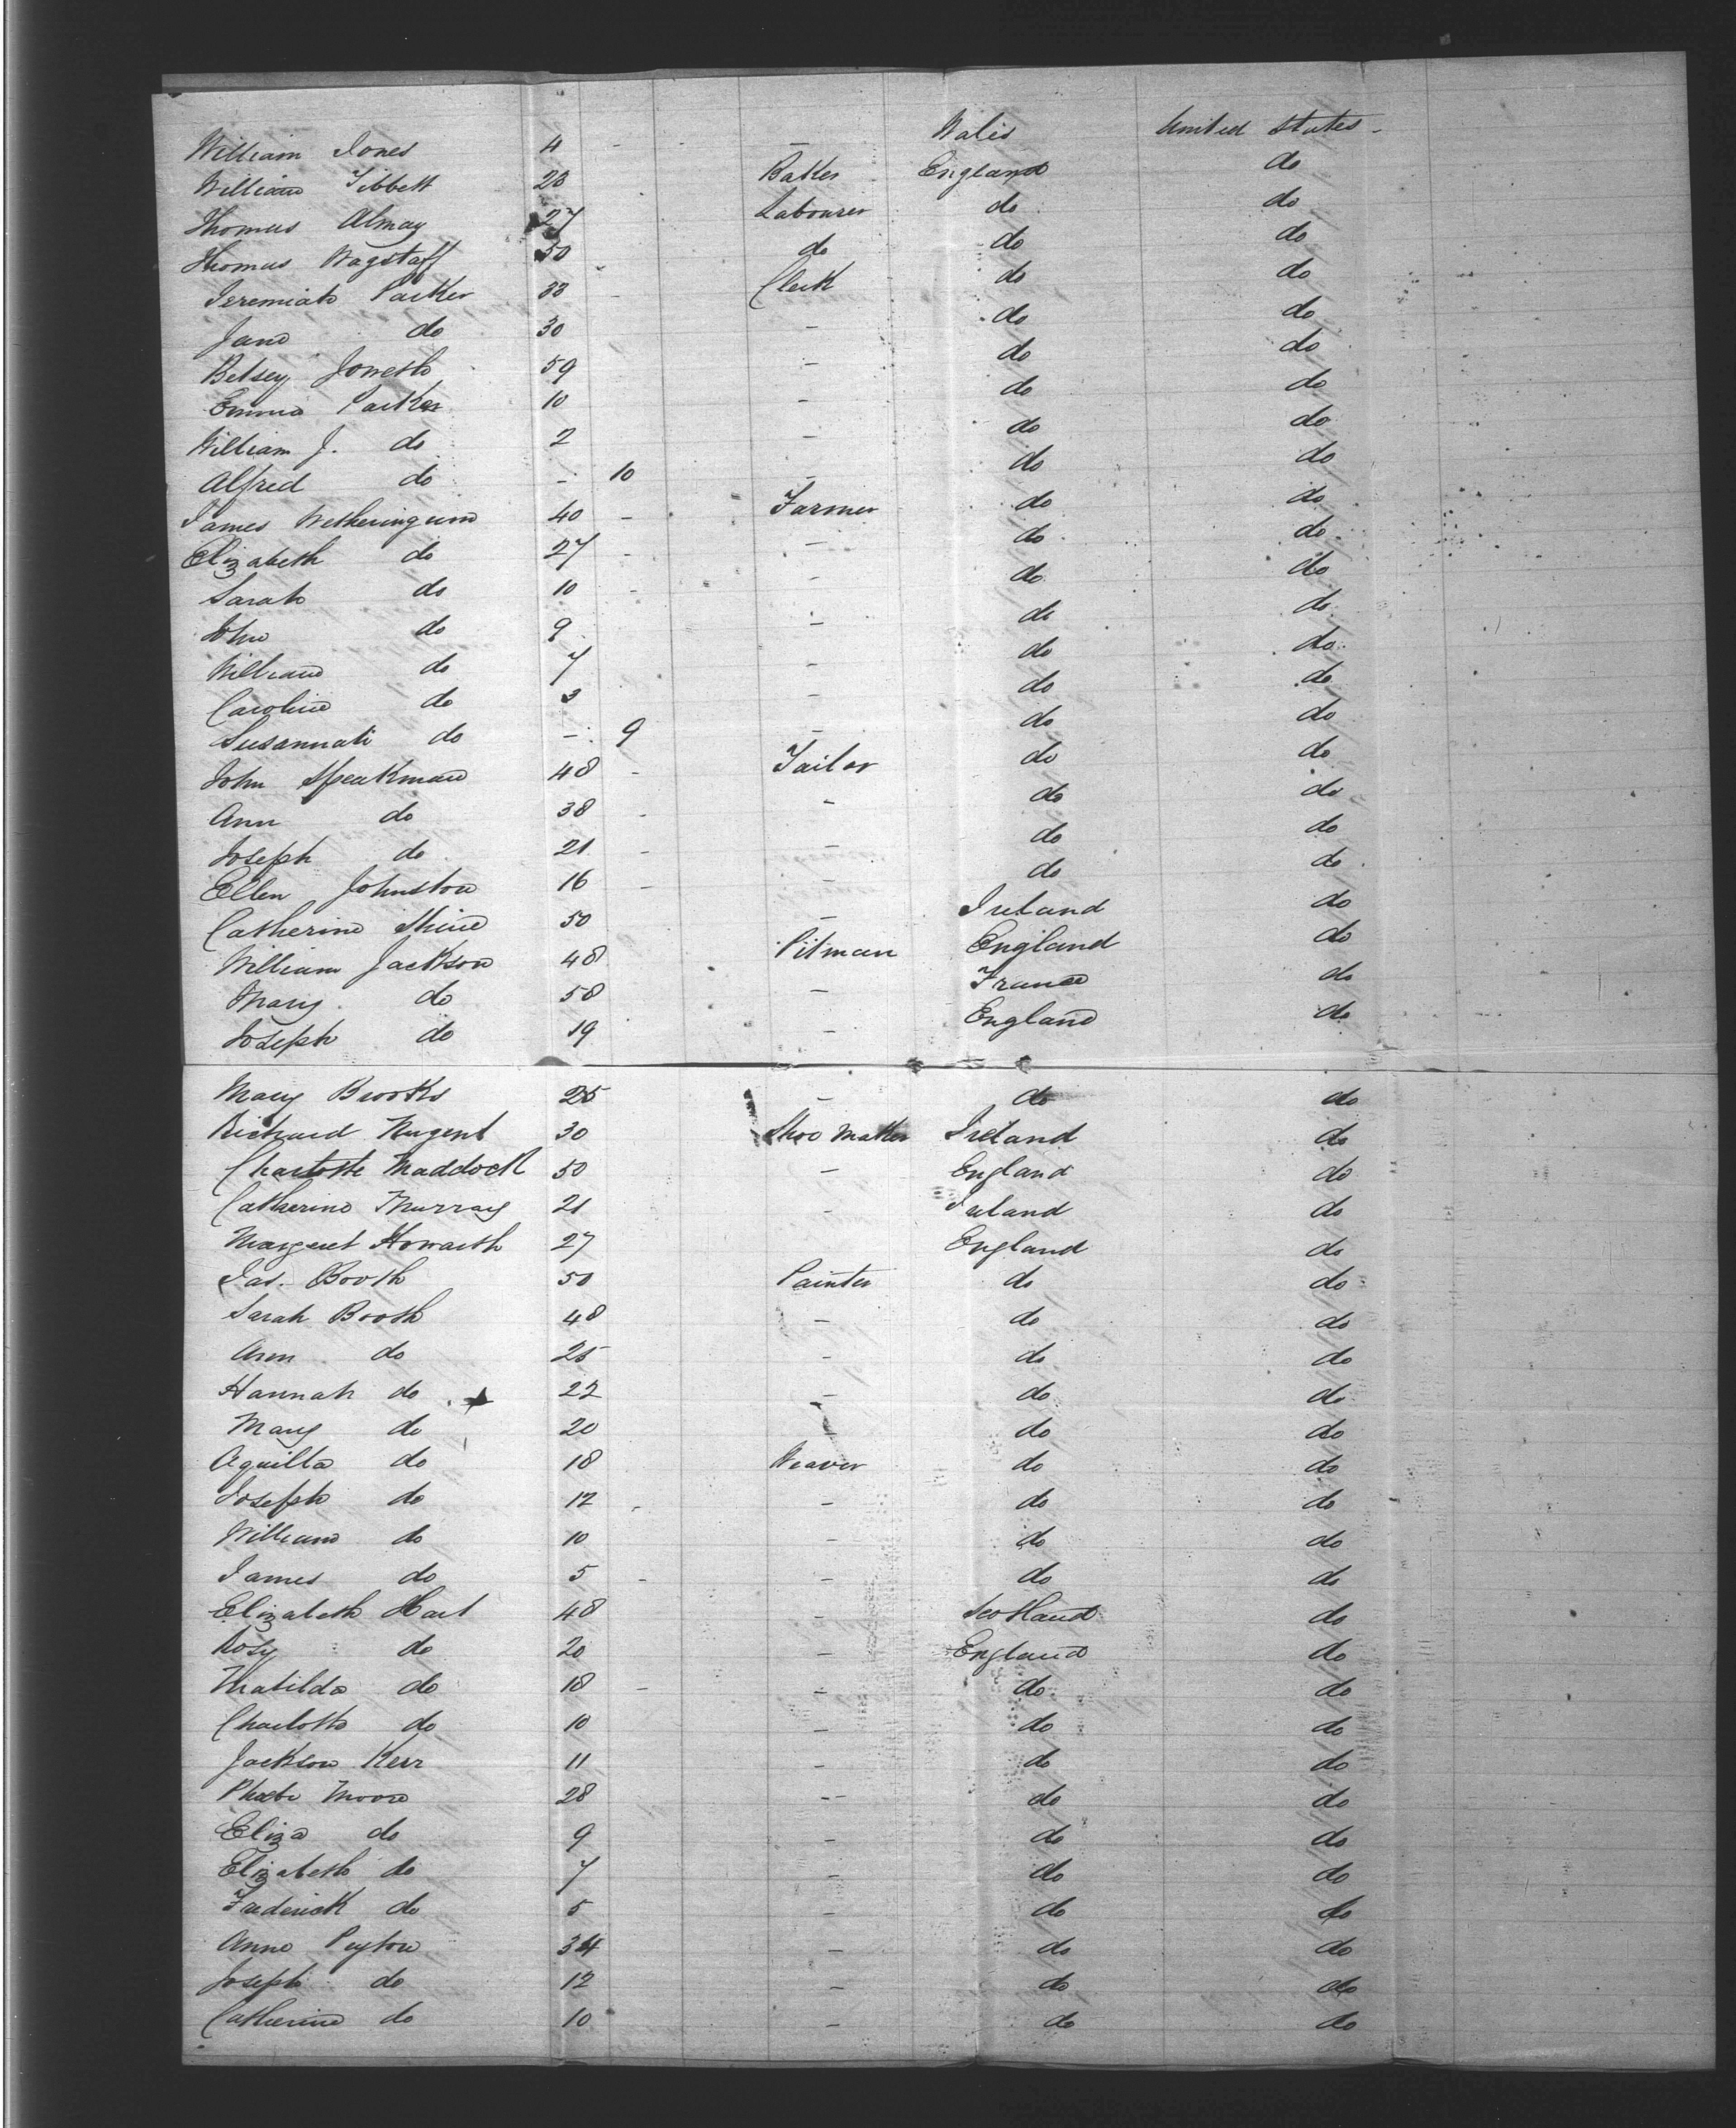 William Jones 4 - - Wales United States -
William Tibbett 28 Baker England do
Thomas Almay 27 Labourer do do
Thomas Wagstaff 50 do do do
Jeremiah Parker 33 - Clerk do do
Jane do 30 - do do
Betsey 59 - do do
Emma Parker 10 - do do
William J. do 2 - do do
Alfred do - 10 - do do
James Wetheringum 40 - Farmer do do
Elizabeth do 27 - - do do
Sarah do 10 - - do do
John do 9 - do do
William do 7 - do do
Caroline do 3 - do do
Susannah do - 9 - do do
John Speakman 48 - Tailor do do
Ann do 38 - - do do
Joseph do 21 - - do do
Ellen Johnston 16 - - do do
Catherine Shine 50 - Ireland do
William Jackson 48 Pitman England do
Mary do 58 - France do
Joseph do 19 - England do
Mary Brooks 25 - do do
Richard Nugent 30 Shoe Maker Ireland do
Charlotte Maddock 50 - England do
Catherine Murray 21 - Ireland do
Margaret Howarth 27 England do
Jas. Booth 50 Painter do do
Sarah Booth 48 - do do
Ann do 25 - do do
Hannah do 22 - do do
Mary do 20 - do do
Aquilla do 18 Weaver do do
Joseph do 12 - - do do
William do 10 - do do
James do 5 - - do do
Elizabeth Hart 48 - Scotland do
Rosy do 20 - England do
Matilda do 18 - - do do
Charlotte do 10 - do do
Jackson Kerr 11 - do do
Phoebe Moore 28 -- do do
Eliza do 9 - do do
Elizabeth do 7 - do do
Frederick do 5 - do do
Anne Peyton 34 - do do
Joseph do 12 - do do
Catherine do 10 - do do